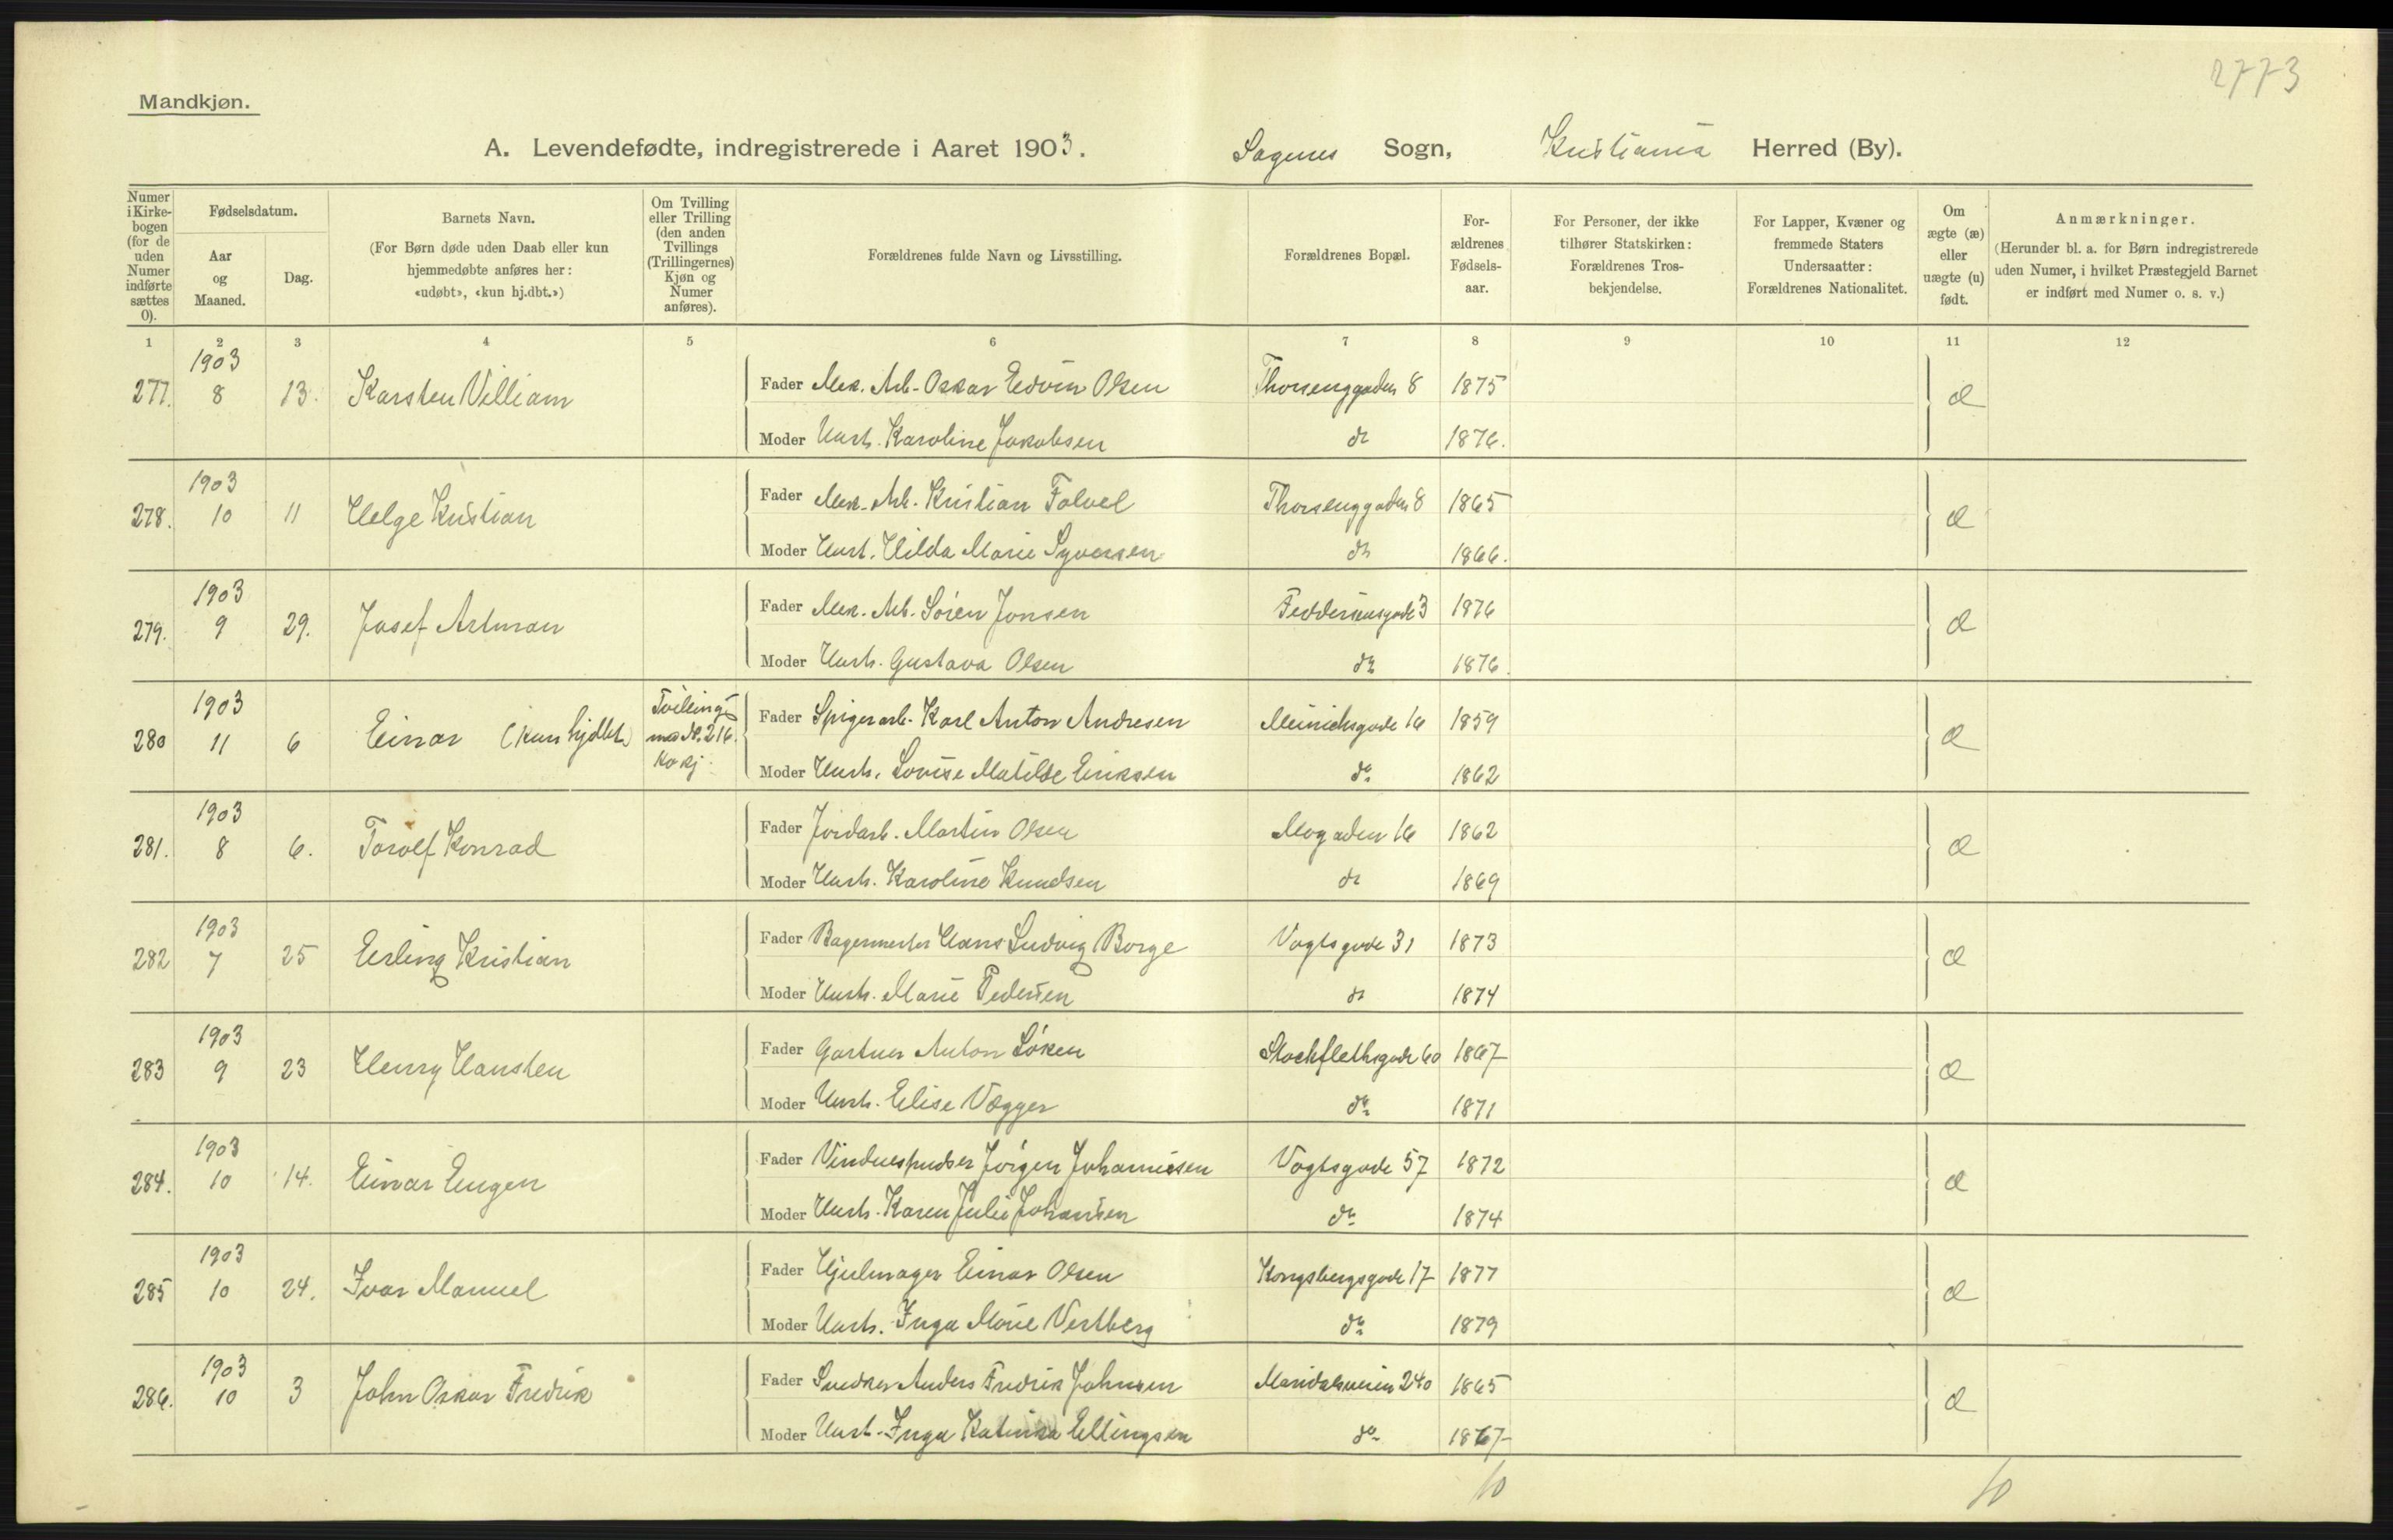 2773
Mandkjøn.
A. Levendefødte, indregistrerede i Aaret 1903. Sagenes Sogn, Kristiania Herred (By).
Numer i Kirke-bogen (for de uden Numer indførte sættes 0). Fødselsdatum. Aar og Maaned. Dag. Barnets Navn. (For Børn døde uden Daab eller kun hjemmedøbte anføres her: «udøbt», «kun hj.dbt.») Om Tvilling eller Trilling (den anden Tvillings (Trillingernes) Kjøn og Numer anføres). Forældrenes fulde Navn og Livsstilling. Forældrenes Bopæl. For-ældrenes Fødsels-aar. For Personer, der ikke tilhører Statskirken: Forældrenes Tros-bekjendelse. For Lapper, Kvæner og fremmede Staters Undersaatter: Forældrenes Nationalitet. Om ægte (æ) eller uægte (u) født. Anmærkninger. (Herunder bl. a. for Børn indregistrerede uden Numer, i hvilket Præstegjeld Barnet er indført med Numer o. s. v.)
1 2 3 4 5 6 7 8 9 10 11 12
1903
277. 8 13. Karsten Villiam Fader Mek. Arb. Oskar Edvin Olsen Thorsenggaden 8 1875 æ
Moder Hust. Karoline Jakobsen do 1876.
1903
278. 10 11 Helge Kristian Fader Mek. Arb. Kristian Folvel Thorsenggaden 8 1865 æ
Moder Hust. Hilda Marie Syversen do 1866.
1903
279. 9 29. Josef Artman Fader Mek. Arb. Søren Jonsen Feddersensgade 3 1876 æ
Moder Hust. Gustava Olsen do 1876.
1903
280 11 6 Einar (kun hjdbt.) Tvilling m. No. 216. Kvkj. Fader Spigerarb. Karl Anton Andresen Meinichsgade 16 1859 æ
Moder Hust. Lovise Matilde Eriksen do 1862
1903
281. 8 6. Torolf Konrad Fader Jordarb. Martin Olsen Mogaden 16 1862 æ
Moder Hust. Karoline Knudsen do 1869
1903
282 7 25 Erling Kristian Fader Bagermester Hans Ludvig Borge Vogtsgade 31 1873 æ
Moder Hust. Marie Pedersen do 1874
1903
283 9 23 Henry Hansten Fader Gartner Anton Løken Stockflethsgade 60 1867 æ
Moder Hust. Elise Vægger do 1871
1903
284. 10 14. Einar Eugen Fader Vinduespudser Jørgen Johannesen Vogtsgade 57 1872 æ
Moder Hust. Karen Julie Johansen do 1874
1903
285 10 24. Ivar Manuel Fader Hjulmager Einar Olsen Kongsbergsgade 17 1877 æ
Moder Hust. Inga Marie Vestberg do 1879
1903
286. 10 3 John Oskar Fredrik Fader Snedker Anders Fredrik Johnsen Maridalsveien 240 1865 æ
Moder Hust. Inga Katinka Ellingsen do 1867
10 10